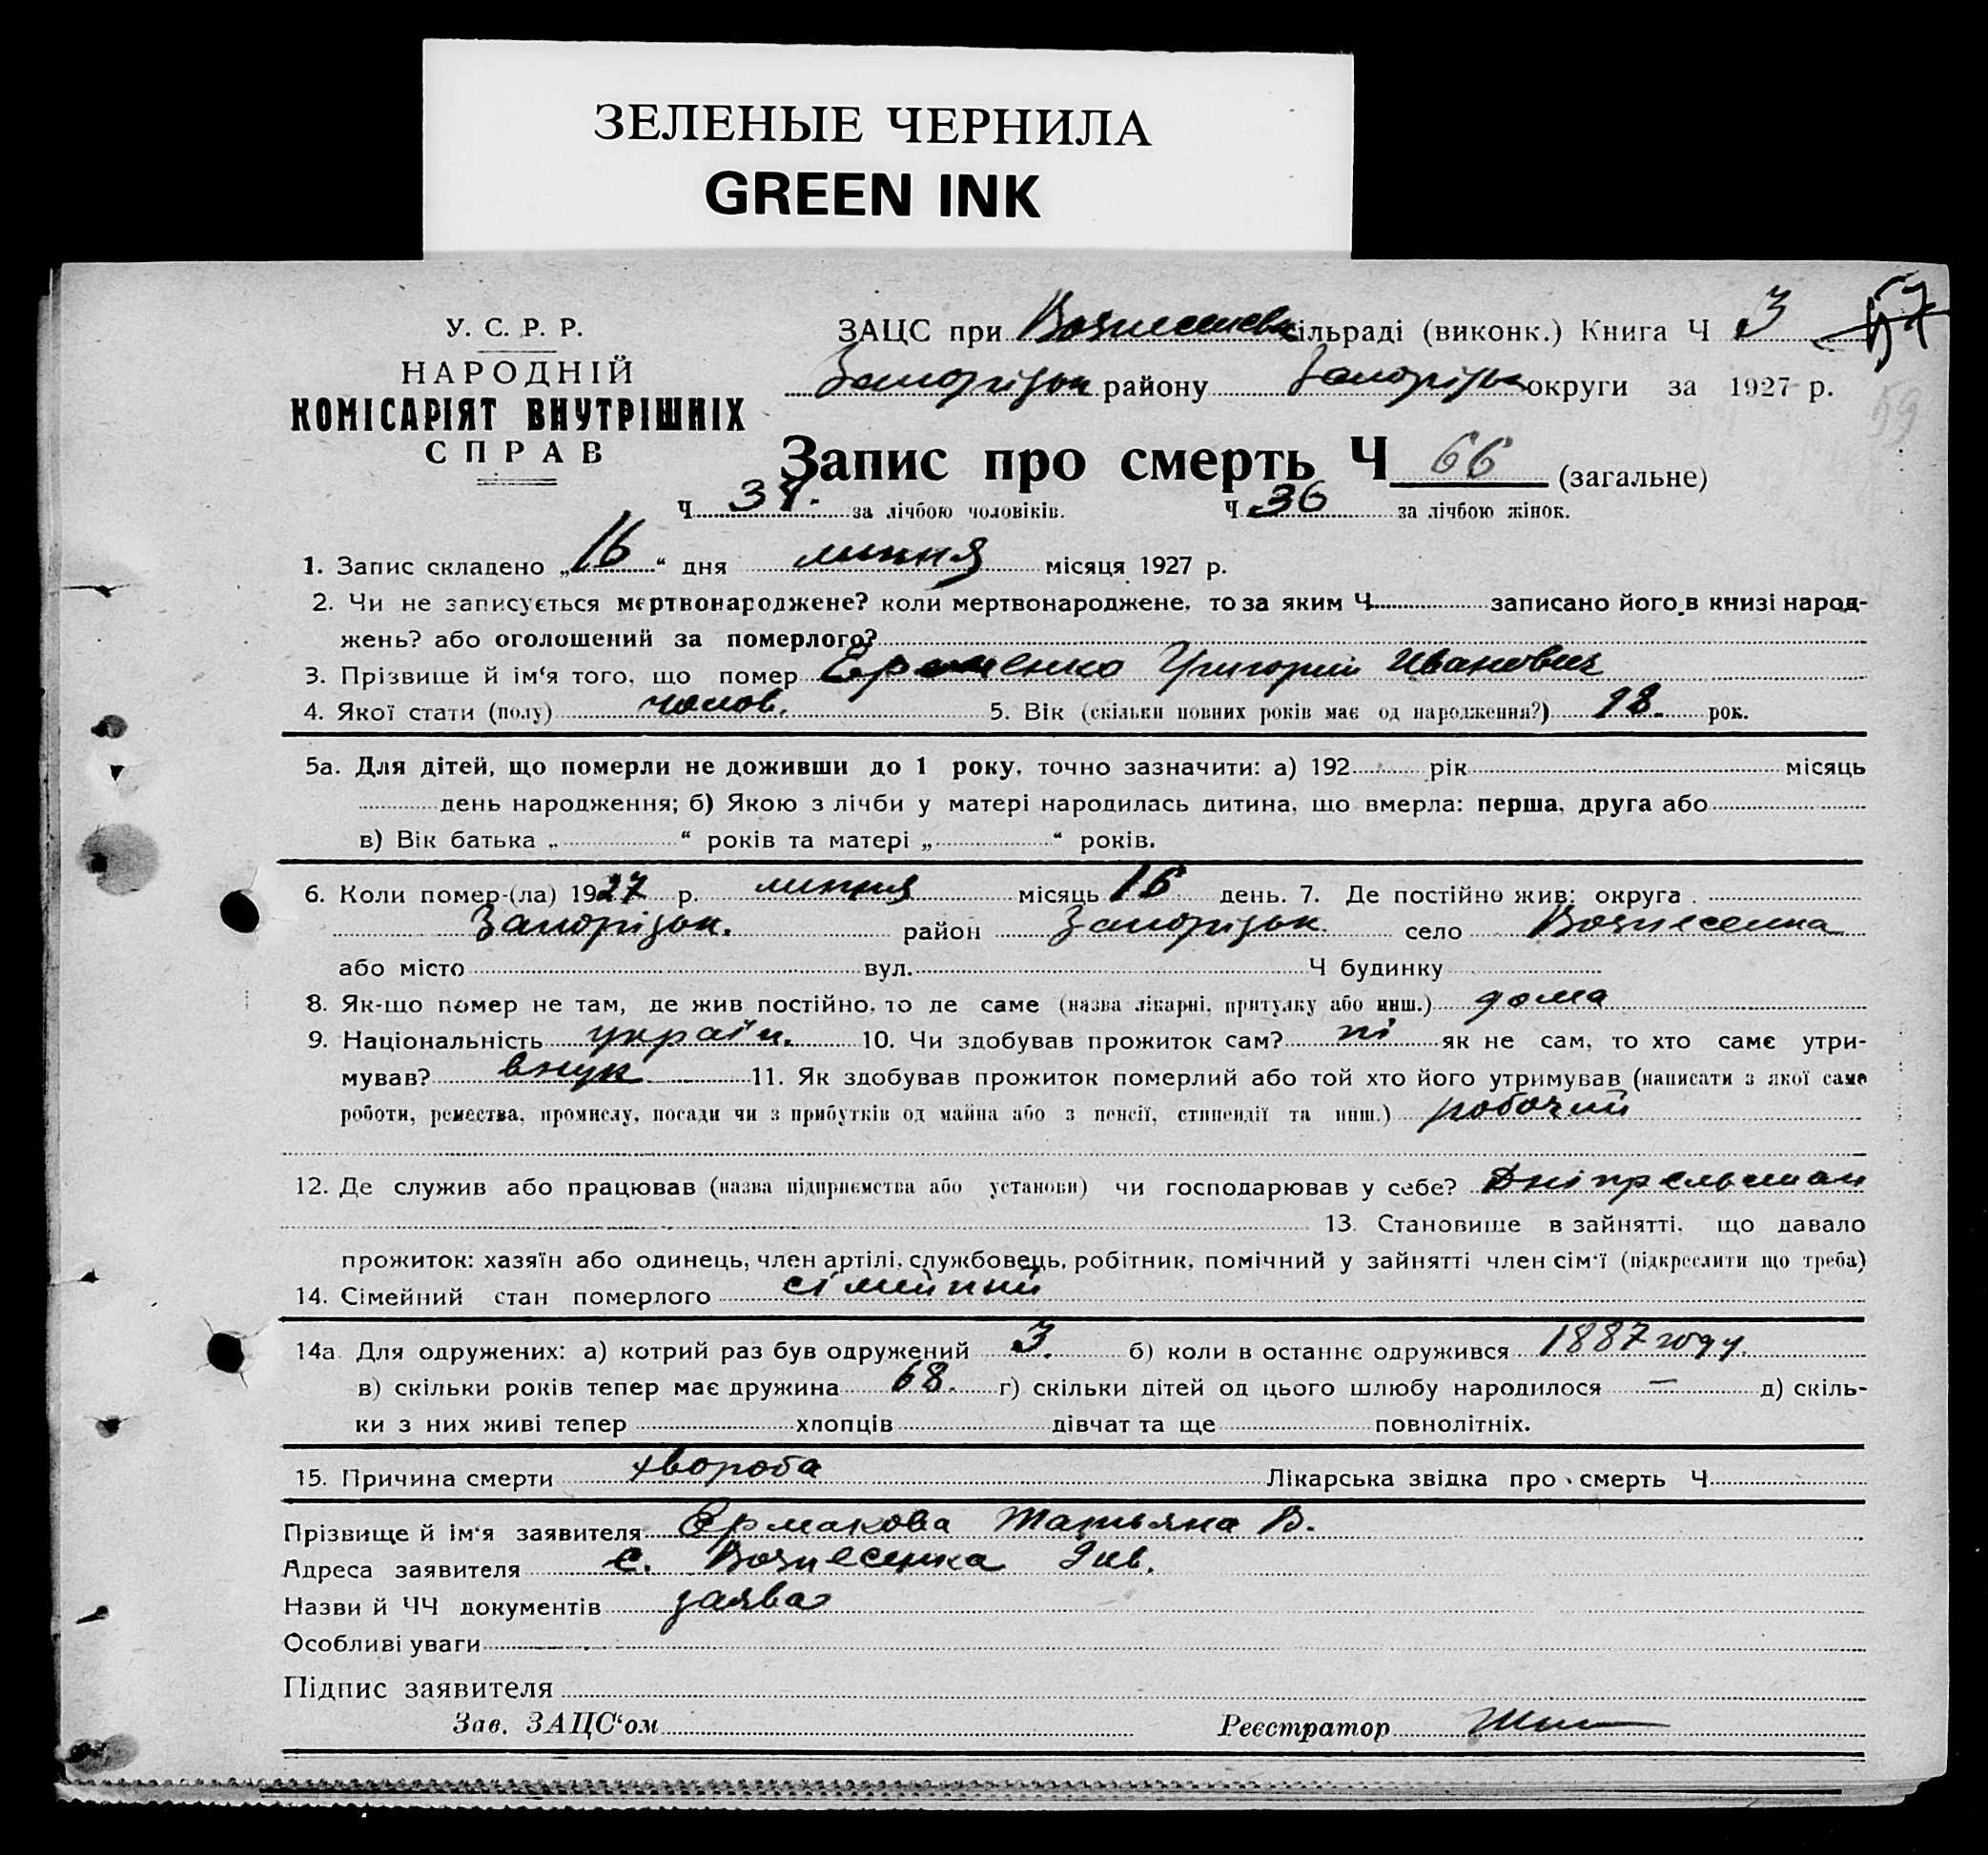 ЗЕЛЕНЫЕ ЧЕРНИЛА
GREEN INK
У. С. Р. Р.
НАРОДНІЙ
КОМІСАРІЯТ ВНУТРІШНІХ
СПРАВ
ЗАЦС при сільраді (виконк.) Книга Ч 3
57
Запорізьк району Запорізьк округи за 1927 р.
59
Запис про смерть Ч 66 (загальне)
Ч за лічбою чоловіків. Ч 36 за лічбою жінок.
1. Запис складено „16“ дня липня місяця 1927 р.
2. Чи не записується мертвонароджене? коли мертвонароджене, то за яким Ч записано його в книзі народ-
жень? або оголошений за померлого?
3. Прізвище й ім‘я того, що помер Григорий Иванович
4. Якої стати (полу) чолов. 5. Вік (скільки повних років має од народження?) 98. рок.
5а. Для дітей, що померли не доживши до 1 року, точно зазначити: а) 192 рік місяць
день народження; б) Якою з лічби у матері народилась дитина, що вмерла: перша, друга або
в) Вік батька „ “ років та матері „ “ років.
6. Коли помер-(ла) 1927 р. липня місяць 16 день. 7. Де постійно жив: округа
Запорізьк. район Запорізьк село Вознесенка
або місто вул. Ч будинку
8. Як-що помер не там, де жив постійно, то де саме (назва лікарні, притулку або инш.) дома
9. Національність україн. 10. Чи здобував прожиток сам? ні як не сам, то хто саме утри-
мував? внук 11. Як здобував прожиток померлий або той хто його утримував (написати з якої саме
роботи, ремества, промислу, посади чи з прибутків од майна або з пенсії, стипендії та инш.) робочий
12. Де служив або працював (назва підприємства або установи) чи господарював у себе? Дніпрельстан
13. Становище в зайнятті, що давало
прожиток: хазяїн або одинець, член артілі, службовець, робітник, помічний у зайнятті член сім‘ї (підкреслити що треба)
14. Сімейний стан померлого сімийний
14а Для одружених: а) котрий раз був одружений 3. б) коли в останнє одружився 1887 году
в) скільки років тепер має дружина 68. г) скільки дітей од цього шлюбу народилося — д) скіль-
ки з них живі тепер хлопців дівчат та ще повнолітніх.
15. Причина смерти хвороба Лікарська звідка про смерть Ч
Прізвище й ім‘я заявителя Ермакова Татьяна В.
Адреса заявителя с. Вознесенка
Назви й ЧЧ документів заява
Особливі уваги
Підпис заявителя
Зав. ЗАЦС‘ом Реєстратор